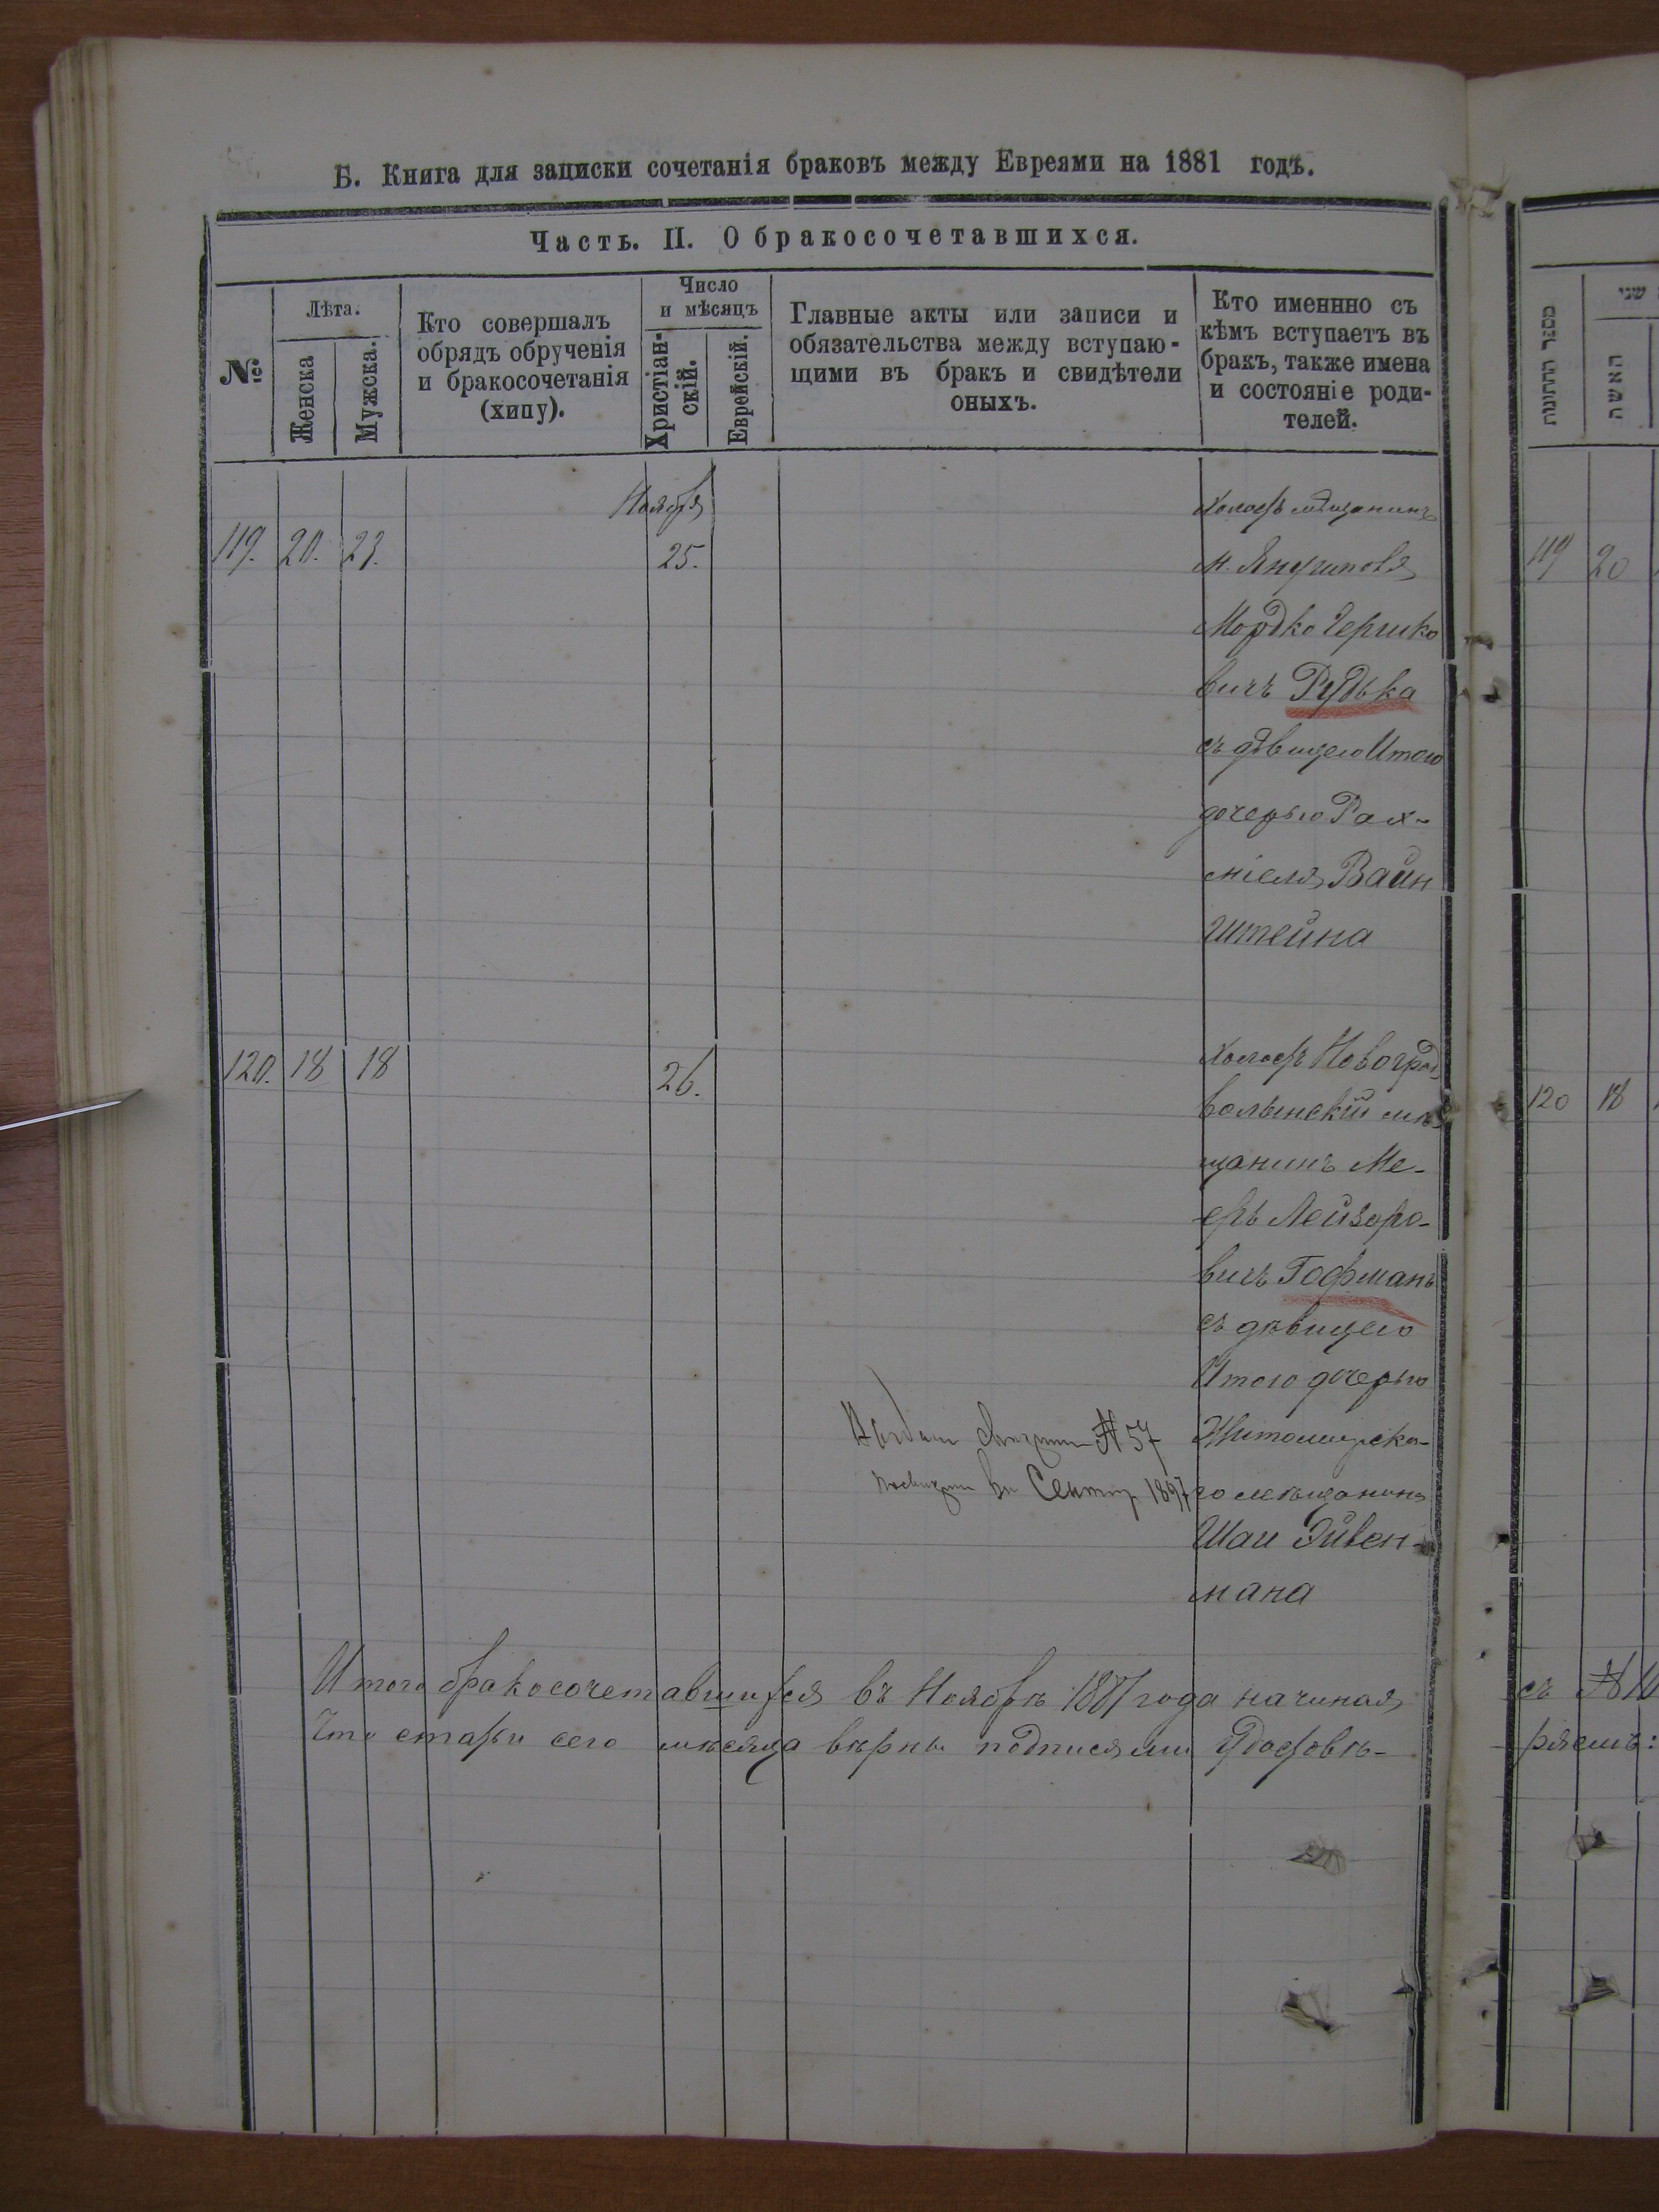 Б. Книга для записки сочетанія браковъ между Евреями на 1881 годъ.
Часть. II. О бракосочетавшихся.
№
Лѣта.
Женска
Мужска.
Кто совершалъ
обрядъ обрученія
и бракосочетанія
(хипу).
Число
и мѣсяцъ
Христіан-
скій.
Еврейскій.
Главные акты или записи и
обязательства между вступаю-
щими въ бракъ и свидѣтели
оныхъ.
Кто именнно съ
кѣмъ вступаетъ въ
бракъ, также имена
и состояніе роди-
телей.
מספר החתונות
שני
האשה
Ноября
119. 20. 23. 25.
Холостъ мѣщанинъ
м.
Мордко Гершко
вичъ Рудька
съ дѣвицею Итою
дочерью Рах-
міеля Вайн
штейна
119 20
120. 18 18 26.
Холостъ Новоград
волынскій мѣ
щанинъ Ме-
еръ Лейзоро-
вичъ Гофманъ
съ дѣвицею
Итою дочерью
Житомирска-
го мѣщанина
Шаи Эйвен-
мана
120 18
№ 57
Сентяб 1897
Итого бракосочетавшихся въ Ноябрѣ 1881 года начиная
съ №
что статьи сего мѣсяца вѣрны подписями удостовѣ-
ряемъ: